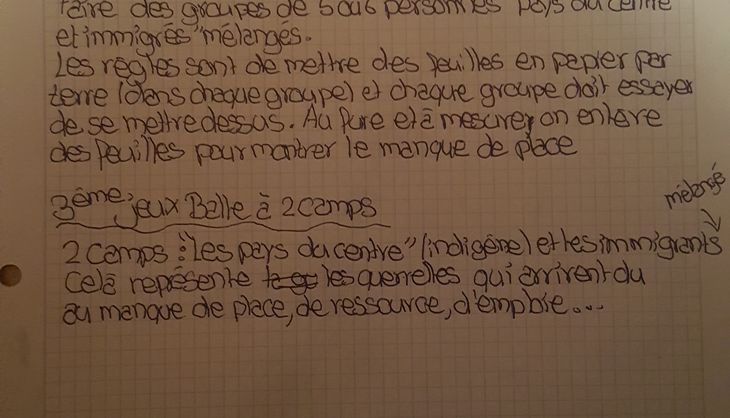 faire des groupes de 5 ou 6 personnes pays du centre
et immigrés "mélangés.
Les règles sont de mettre des feuilles en papier par
terre (dans chaque groupe) et chaque groupe doit essayer
de se mettre dessus. Au fure et à mesure, on enlève
des feuilles pour montrer le manque de place
3ème jeux Balle à 2 camps
mélangé
2 camps : "les pays du centre" (indigène) et les immigrants
Celà représente les querrelles qui arrivent du
au manque de place, de ressource, d'emploie...